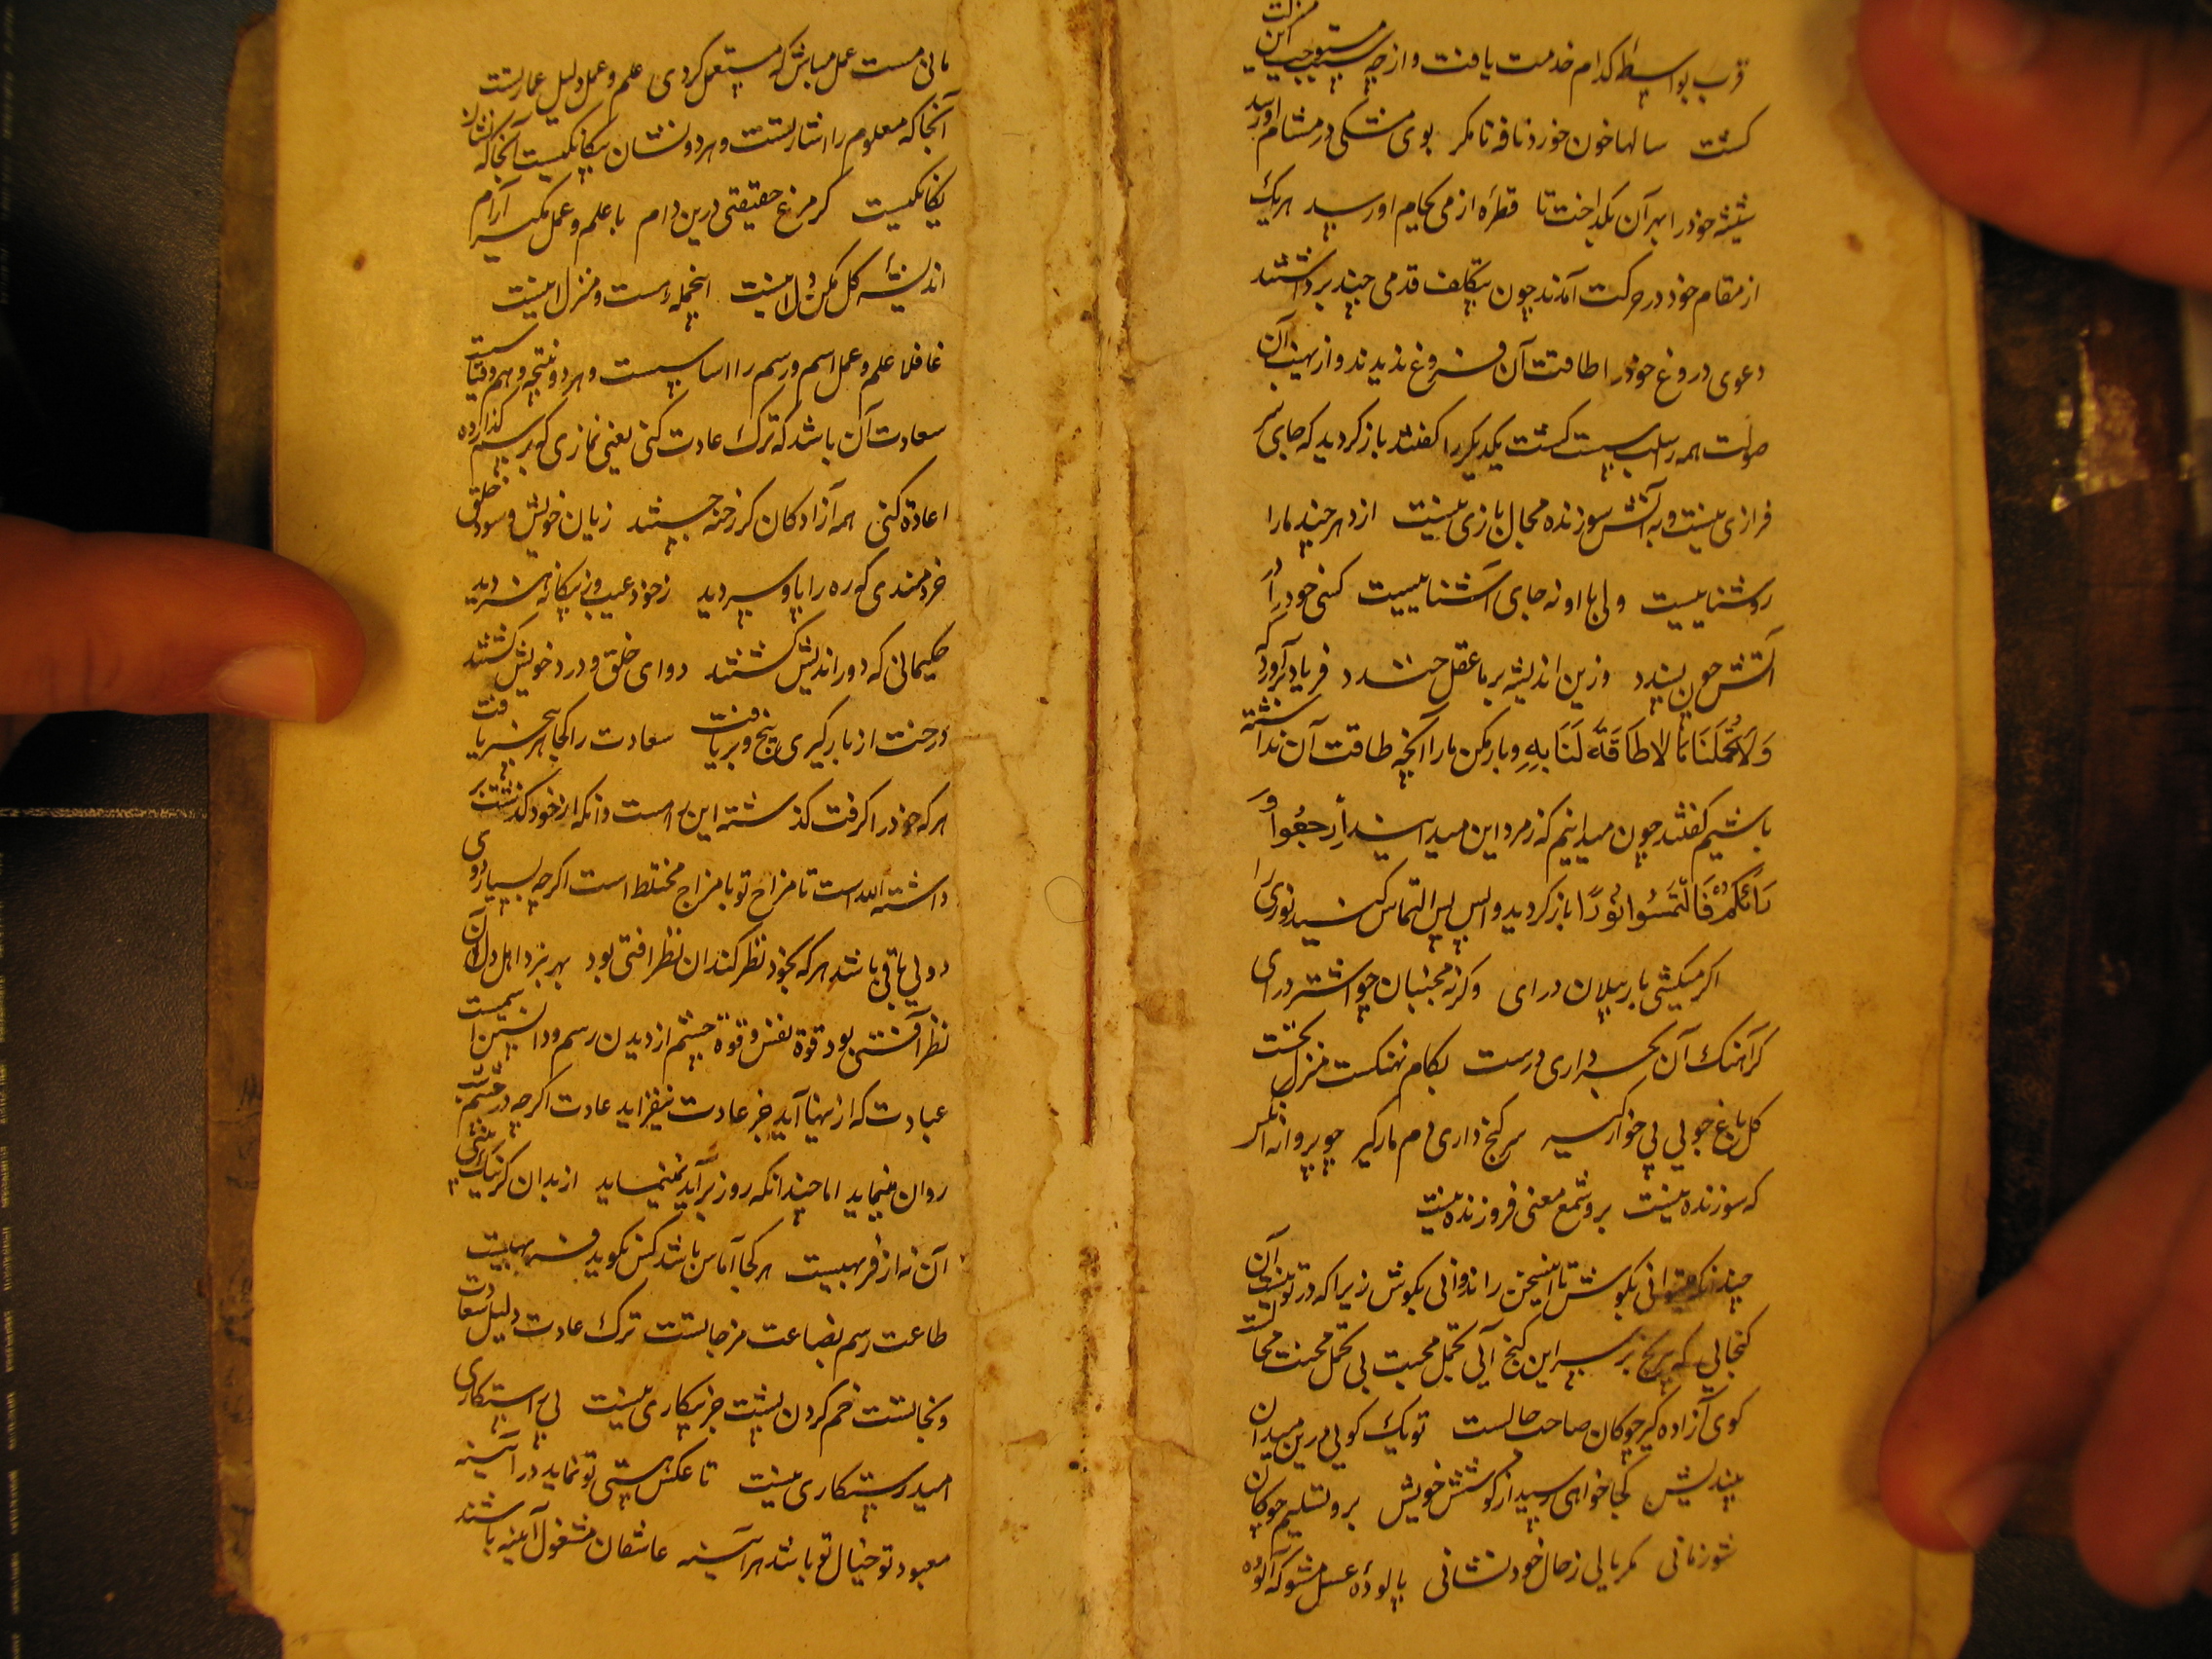 قرب بواسطه کدام خدمت یافت و از چه سبب مستوجب این منزلت
کشت سالها خون خورد نافه تا مکر بوی مشکی در مشام اورسد
شیشه خود را بهر آن بکداخت تا قطرهٔ از می بکام اورسد هر یک
از مقام خود در حرکت آمدند چون بتکلف قدمی چند برداشتند
دعوی دروغ خود را طاقت آن فروغ ندیدند و از نهیب آن
صولت همه را سلب کشت یکدیکر را کفتند باز کردید که جای سر
فرازی نیست و به آتش سوزنده مجال بازی نیست از و هر چند ما را
روشناییست ولی با او نه جای آشناییست کسی خود را در
آتش چون پسندد وزین اندیشه بر ما عقل خندد فریاد برآورد که
وَلَا تُحَمِّلْنَا مَا لَا طَاقَةَ لَنَا بِهِ و بار مکن ما را آنچه طاقت آن نداشته
باشیم کفتند چون میدانیم که نه مرد این میدانیم اِرجِعُوا وَ
رَائَكُمْ فَالْتَمِسُوا نُورًا باز کردید و از پس التماس کنید نوری را
اکر میکشی بار پیلان درای وکرنه مجنبان چو اشتر درای
کر آهنک آن بحر داری درست بکام نهنکست منزل نخست
کل باغ جویی پی خار کیر سر کنج داری دم مار کیر چو پروانه را کر
که سوزنده نیست برو شمع معنی فروزنده نیست
چندانکه میتوانی بکوش تا این سخن را ندانی بکوش زیرا که در تو نیست آن
کنجایی که بی رنج بر سر این کنج آیی تحمل محبت بی تحمل محنت محالست
کوی آزاده کیر چوکان صاحب حالست تو یک کویی درین میدان
بیندیش کجا خواهی رسید از کوشش خویش برو تسلیم چوکان
شو زمانی مکر یابی ز حال خود نشانی پالودهٔ عسل مشو که آلوده
مانی مست عمل مباش که مستعمل کردی علم و عمل دلیل عمارتست
آنجا که معلوم را اشارتست و هر دو نشان بیکانکیست آنجا که نشان
یکانکیست کر مرغ حقیقتی درین دام با علم و عمل مکیر آرام
اندیشهٔ کل مکن دلا نیست اینجمله رهست و منزلا نیست
غافلا علم و عمل اسم و رسم را اساسیست و هر دو نتیجه وهم و قیاسست
سعادت آن باشد که ترک عادت کنی یعنی نمازی که برسم کذارده
اعاده کنی همه آزادکان کز رخنه جستند زیان خویش و سود خلق
خردمندی که ره را پا و سر دید ز خود عیب و ز بیکانه هنر دید
حکیمانی که دور اندیش کشتند دوای خلق و درد خویش کشتند
درخت از بارکیری بیخ و بر یافت سعادت را کجا هر بی هنر یافت
هر که خود را کرفت کذشته این رهست و آنکه از خود کذشت بر
داشته الله است تا مزاج تو با مزاج مختلط است اکرچه بسیار دوی
دویی باقی باشد هر که بخود نظر کند آن نظر آفتی بود بهر نزد اهل دل آن
نظر آفتی بود قوة نفس و قوة چشم از دیدن رسم و دانستن اسمیست
عبادت که ازینها آید جز عادت نیفزاید عادت اکرچه در چشم شب
روان مینماید اما چندانکه روز برآید ننماید از بدان کر نیک بینی
آن نه از فربهیست هر کجا آماس باشد کس نکوید فربهیست
طاعت رسم بضاعت مزجاتست ترک عادت دلیل سعادت
و نجاتست خم کردن پشت جز بیکاری نیست بی راستکاری
امید رستکاری نیست تا عکس هستی تو نماید در آینه
معبود تو خیال تو باشد هر آینه عاشقان مشغول آینه باشند